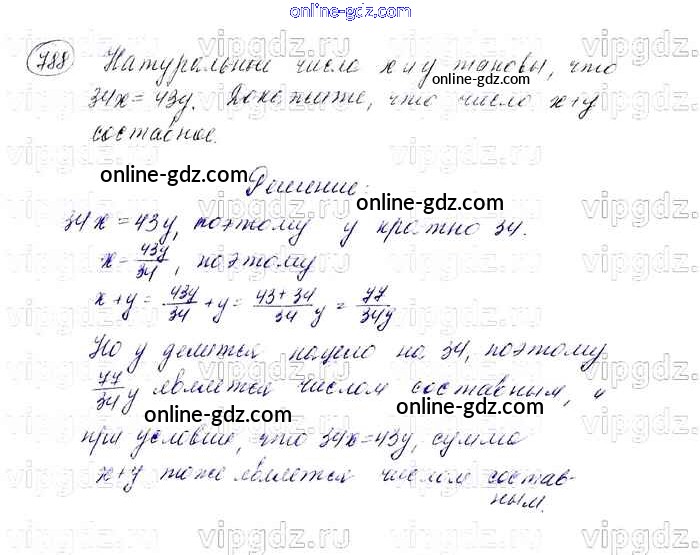 online-gdz.com
788 Натуральные числа x и y таковы, что
34x = 43y. Докажите, что число x+y
составное.
online-gdz.com
Решение:
online-gdz.com
34x = 43y, поэтому y кратно 34.
x = 43y/34, поэтому
x+y = 43y/34 + y = (43+34)/34 y = 77/34 y
Но y делится нацело на 34, поэтому
77/34 y является числом составным, и
при условии, что 34x=43y, сумма
x+y тоже является числом состав-
ным.
online-gdz.com
online-gdz.com
online-gdz.com
online-gdz.com
online-gdz.com
online-gdz.com
online-gdz.com
vipgdz.com